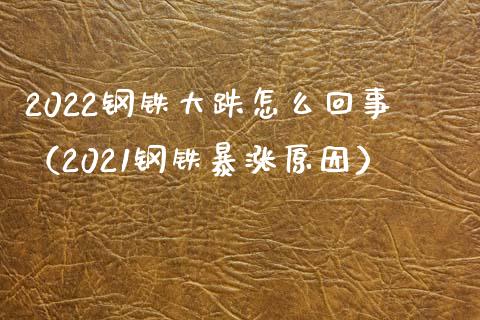 2022钢铁大跌怎么回事
（2021钢铁暴涨原因）